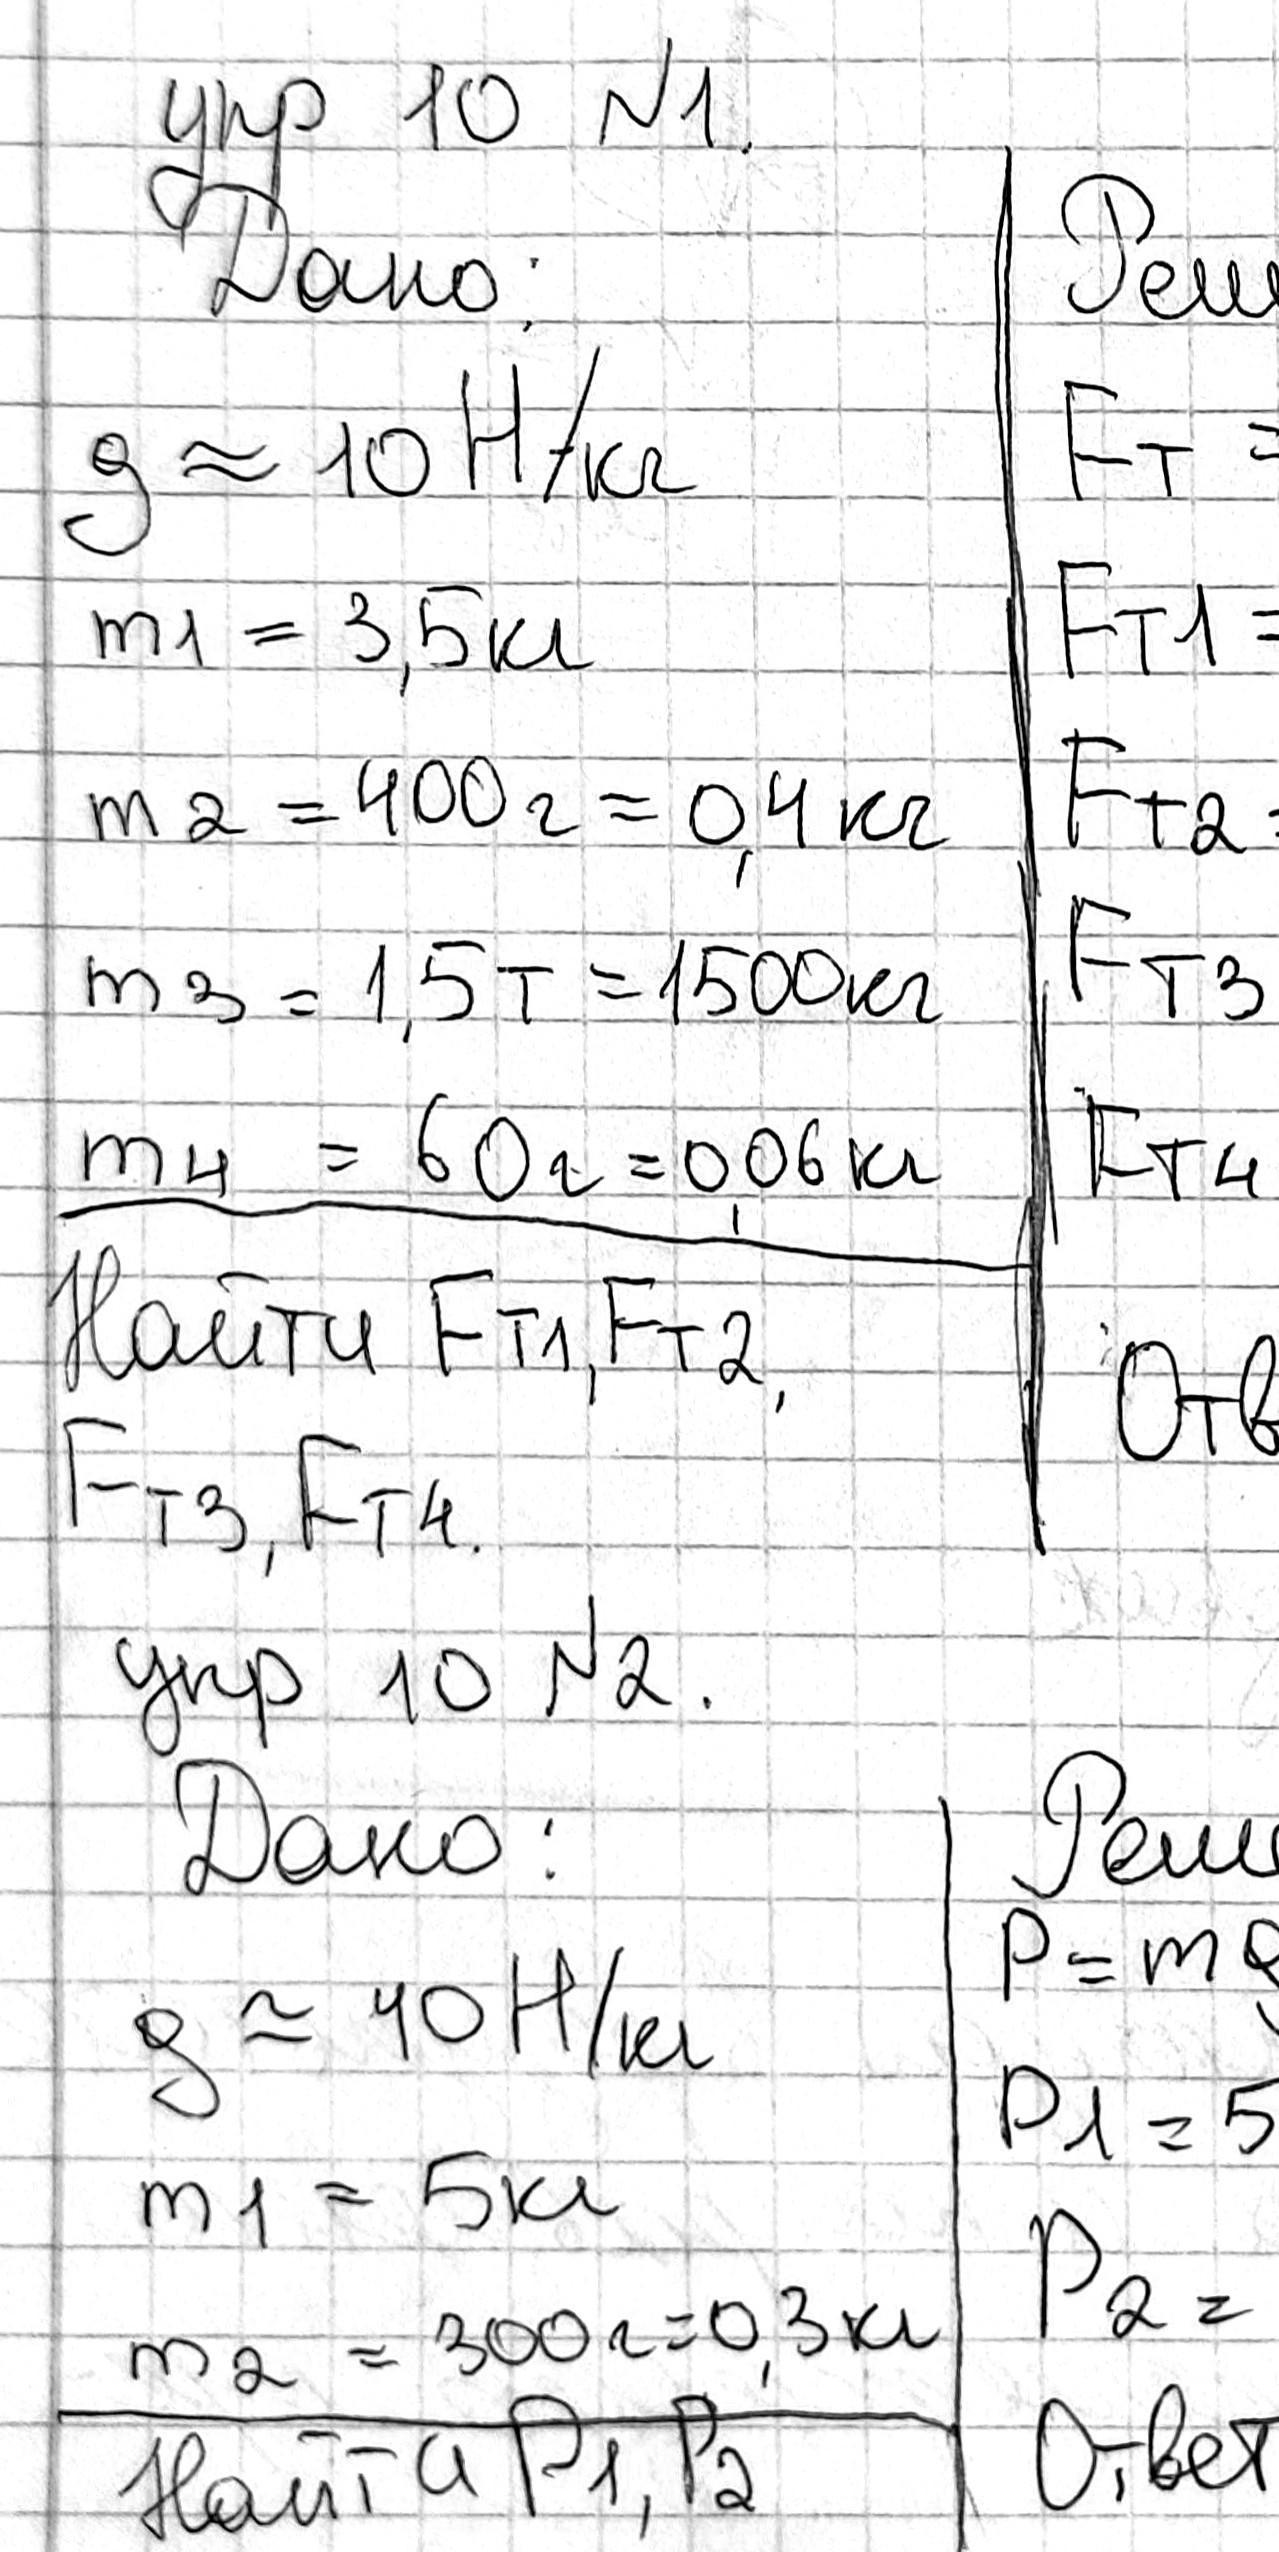 упр 10 №1.
Дано:
g ≈ 10 Н/кг
m1 = 3,5кг
m2 = 400г = 0,4 кг
m3 = 1,5т = 1500кг
m4 = 60г = 0,06 кг
Найти Fт1, Fт2,
Fт3, Fт4.
Реш
Fт =
Fт1 =
Fт2 =
Fт3
Fт4
Отв
упр 10 №2.
Дано:
g ≈ 10 Н/кг
m1 = 5кг
m2 = 300г = 0,3 кг
Найти P1, P2
Реш
P = mg
P1 = 5
P2 =
Ответ